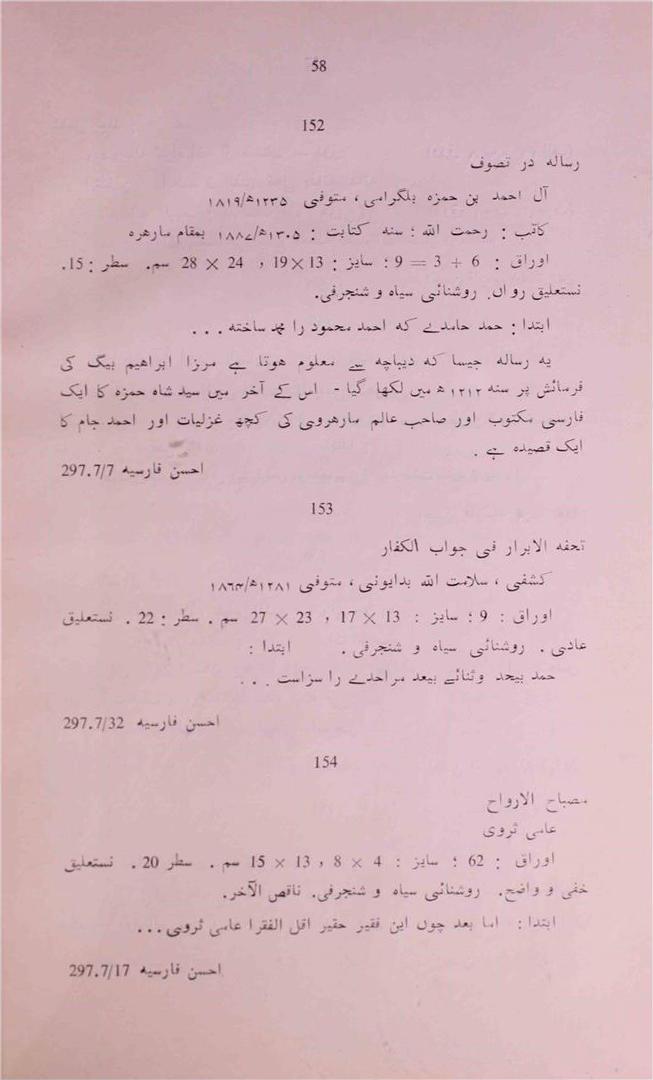 58
152
رسالہ در تصوف
آل احمد بن حمزہ بلگرامی، متوفی ۱۲۳۵ھ/۱۸۱۹
کاتب : رحمت اللہ ؛ سنہ کتابت : ۱۳۰۵ھ/۱۸۸۷ بمقام مارھرہ
اوراق : 6 + 3 = 9 ؛ سایز : 13×19 ، 24 × 28 سم. سطر : 15.
نستعلیق رواں. روشنائی سیاہ و شنجرفی.
ابتدا : حمد حامدے کہ احمد محمود را محمد ساختہ . . .
یہ رسالہ جیسا کہ دیباچہ سے معلوم ہوتا ہے مرزا ابراھیم بیگ کی
فرمائش پر سنہ ۱۲۱۲ ھ میں لکھا گیا - اس کے آخر میں سید شاہ حمزہ کا ایک
فارسی مکتوب اور صاحب عالم مارھروی کی کچھ غزلیات اور احمد جام کا
ایک قصیدہ ہے .
احسن فارسیہ 297.7/7
153
تحفہ الابرار فی جواب الکفار
کشفی ، سلامت اللہ بدایونی ، متوفی ۱۲۸۱ھ/۱۸۶۴
اوراق : 9 ؛ سایز : 13 × 17 ، 23 × 27 سم . سطر : 22 . نستعلیق
عادی . روشنائی سیاہ و شنجرفی . ابتدا :
حمد بیحد وثنائے بیعد مراحدے را سزاست . . .
احسن فارسیہ 297.7/32
154
مصباح الارواح
عامی ثروی
اوراق : 62 ؛ سایز : 4 × 8 ، 13 × 15 سم . سطر 20 . نستعلیق
خفی و واضح. روشنائی سیاہ و شنجرفی. ناقص الآخر.
ابتدا : اما بعد چوں این فقیر حقیر اقل الفقرا عامی ثروی...
احسن فارسیہ 297.7/17